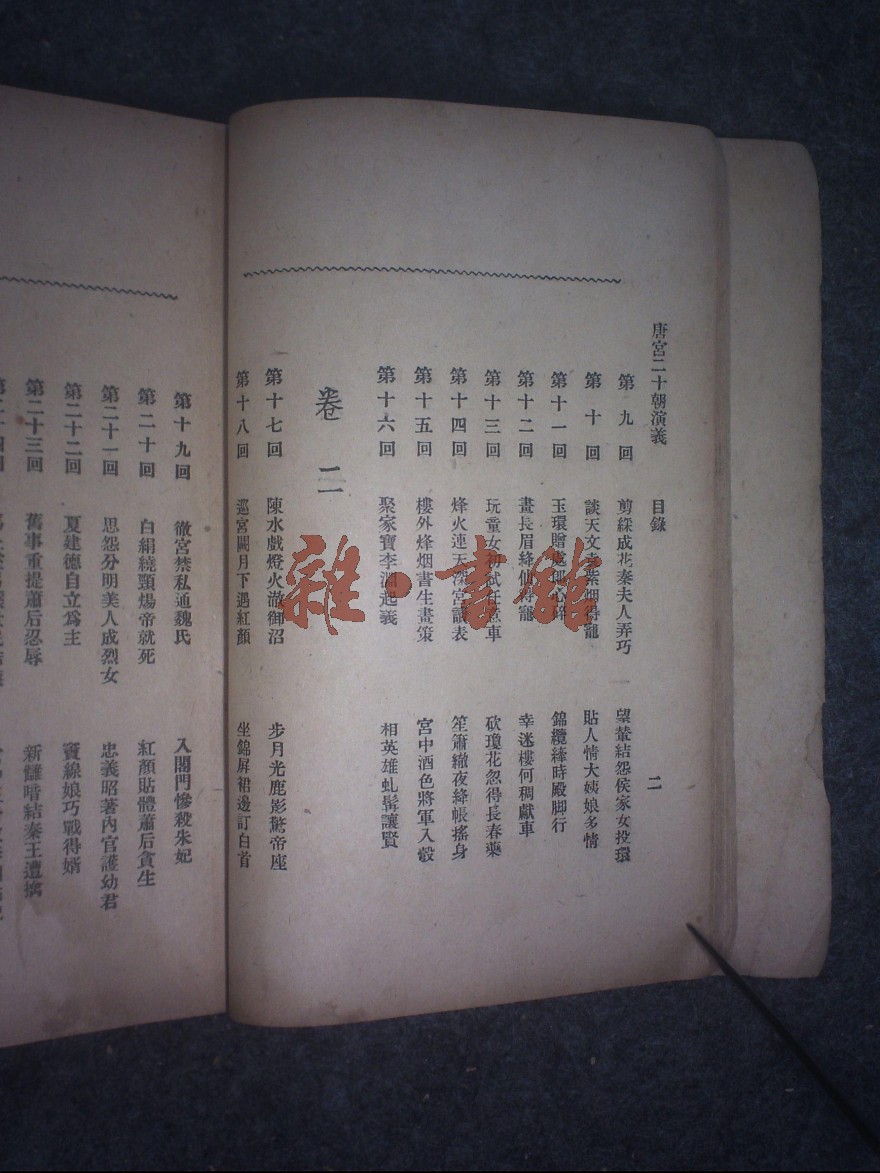 唐宮二十朝演義 目錄 二
第九回 剪綵成花秦夫人弄巧 望蓥結怨侯家女投環
第十回 談天文袁紫烟得寵 貼人情大姨娘多情
第十一回 玉環贈處郎心碎 錦纜縴時殿脚行
第十二回 畫長眉絳仙得寵 幸迷樓何稠獻車
第十三回 玩童女初試任意車 砍瓊花忽得長春藥
第十四回 烽火連天深宮讀表 笙簫徹夜絳帳搖身
第十五回 樓外烽烟書生畫策 宮中酒色將軍入彀
第十六回 聚家寶李淵起義 相英雄虬髯讓賢
卷二
第十七回 陳水戲燈火澈御沼 步月光鹿影驚帝座
第十八回 巡宮闕月下遇紅顏 坐錦屏裙邊訂白首
第十九回 徹宮禁私通魏氏 入閣門慘殺朱妃
第二十回 白絹繞頸煬帝就死 紅顏貼體蕭后貪生
第二十一回 恩怨分明美人成烈女 忠義昭著內官護幼君
第二十二回 夏建德自立爲主 竇線娘巧戰得婿
第二十三回 舊事重提蕭后忍辱 新讎暗結秦王遭擒
雜·書館